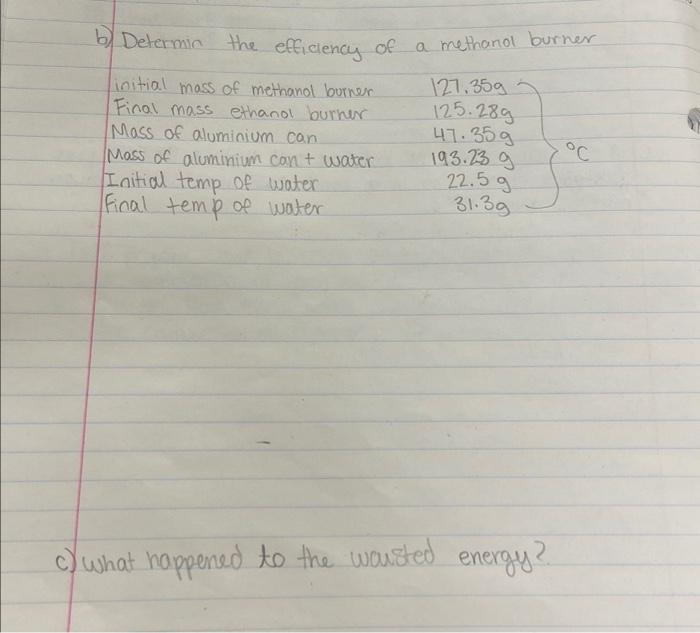 b) Determin the efficiency of a methanol burner
initial mass of methanol burner 127.35g
Final mass ethanol burner 125.28g
Mass of aluminium can 47.35g
Mass of aluminium can + water 193.23 g
Initial temp of water 22.5 g
Final temp of water 31.3g
°C
c) what happened to the wausted energy?